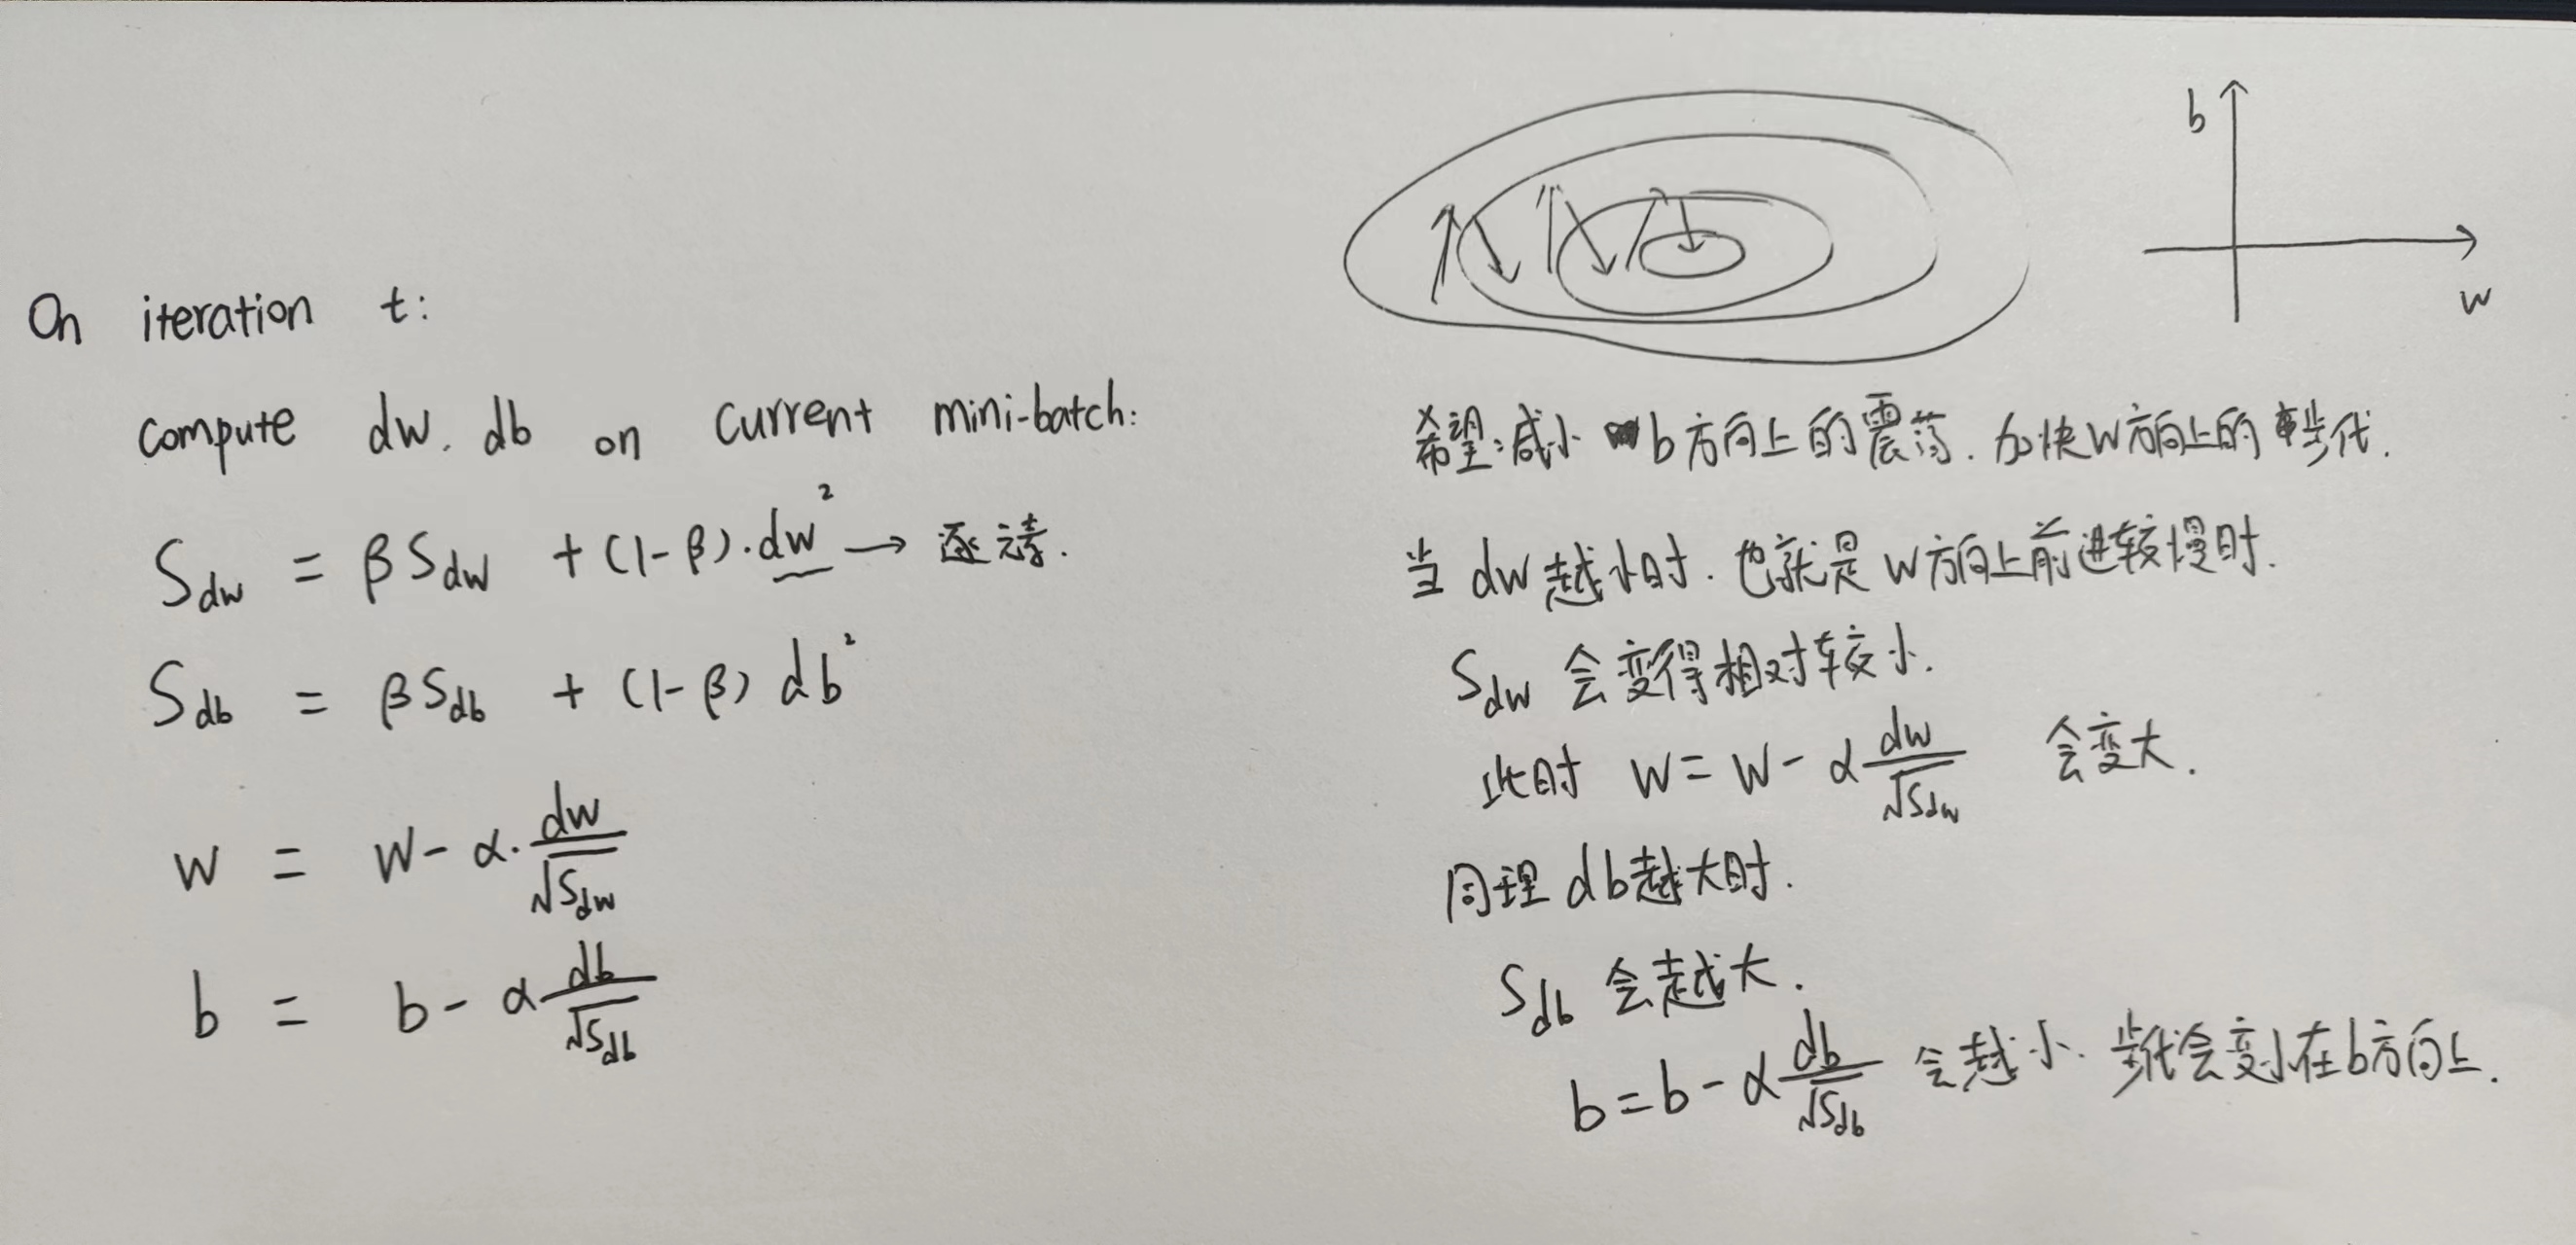 On iteration t:
compute dw. db on current mini-batch:
S_dw = βS_dw + (1-β)·dw² → 逐元素.
S_db = βS_db + (1-β) db²
w = w - α·dw/√S_dw
b = b - α db/√S_db
b
w
希望:减小 b方向上的震荡. 加快w方向上的步伐.
当 dw越小时. 也就是 w方向上前进较慢时.
S_dw 会变得相对较小.
此时 w = w - α dw/√S_dw 会变大.
同理 db越大时.
S_db 会越大.
b = b - α db/√S_db 会越小. 步伐会变小在b方向上.